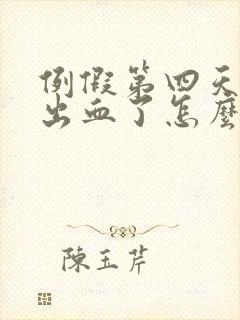 例假第四天
出血了怎麼
陳玉芹